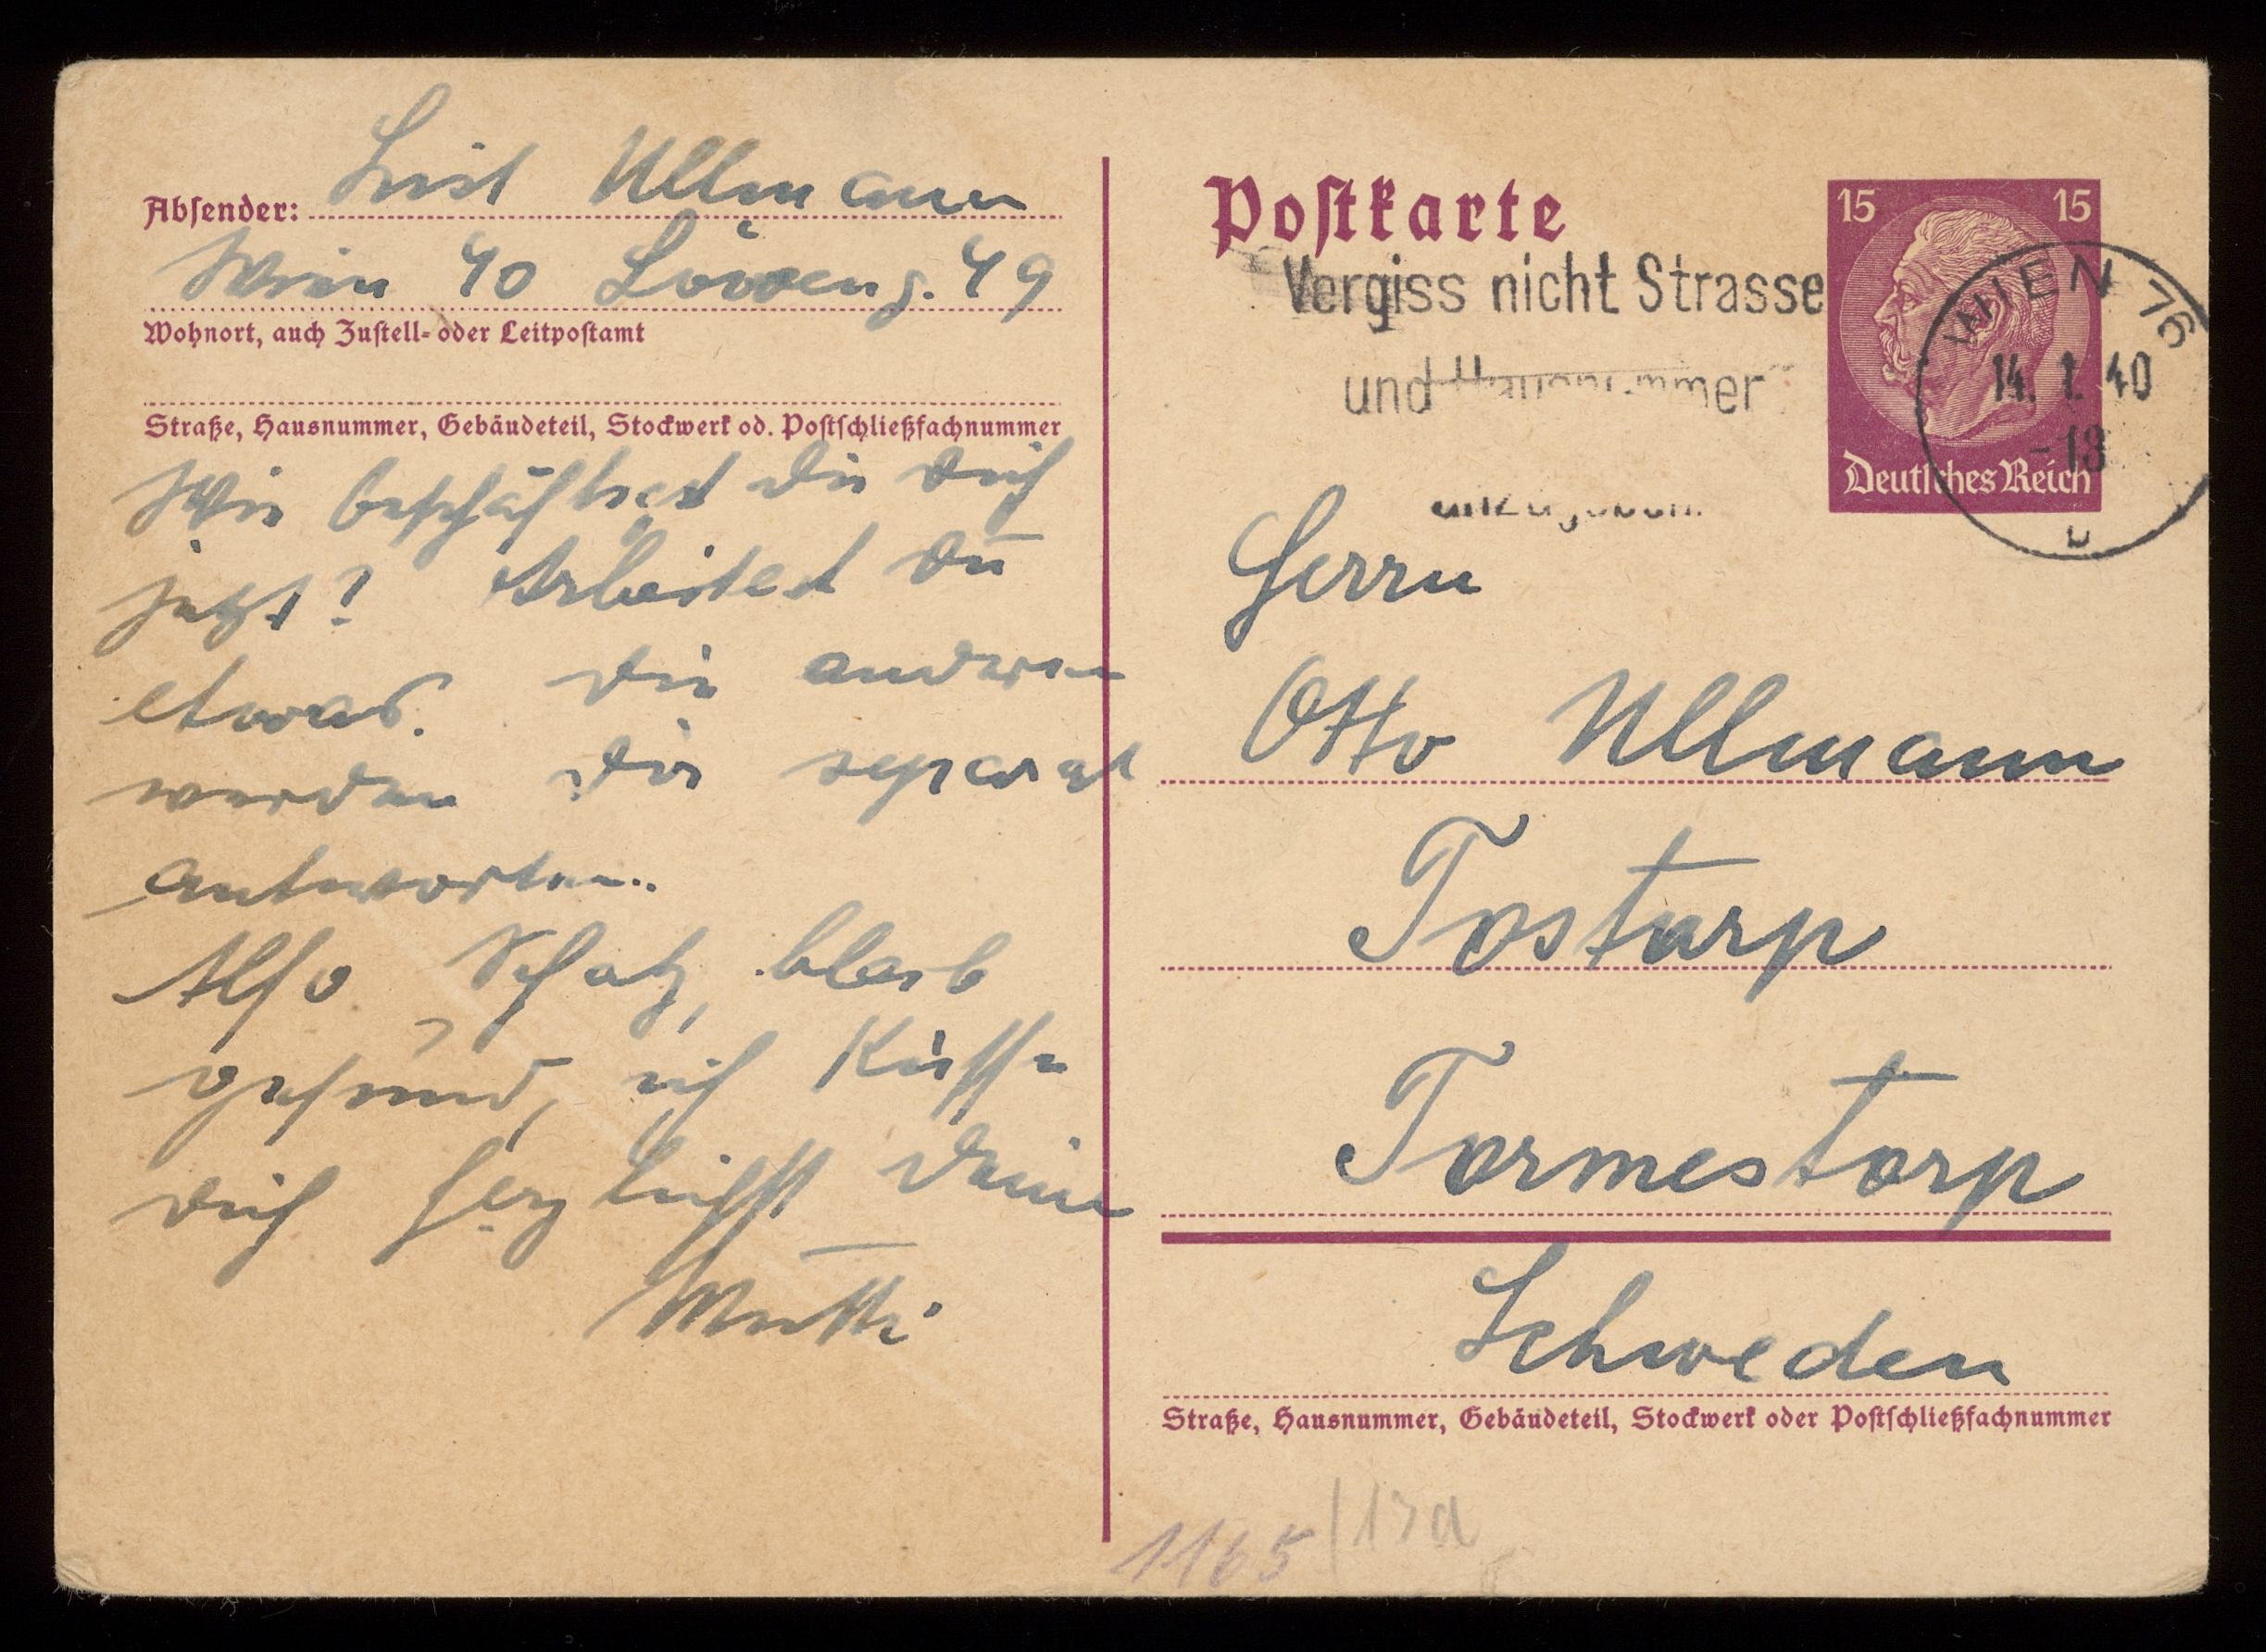 Absender: Lisl Ullmann
Wien 40 Löweng. 49
Wohnort, auch Zustell- oder Leitpostamt
Straße, Hausnummer, Gebäudeteil, Stockwerk od. Postschließfachnummer
Wie beschäftigst Du Dich
jetzt? Arbeitest Du
etwas. Die anderen
werden Dir separat
antworten.
Also Schatz, bleib
gesund, ich küsse
Dich herzlichst Deine
Mutti
Postkarte
15 15
Deutsches Reich
Vergiss nicht Strasse
und Hausnummer
anzugeben
WIEN 76
14. 1. 40
-13
b
Herrn
Otto Ullmann
Tostarp
Tormestorp
Schweden
Straße, Hausnummer, Gebäudeteil, Stockwerk oder Postschließfachnummer
1165/13a